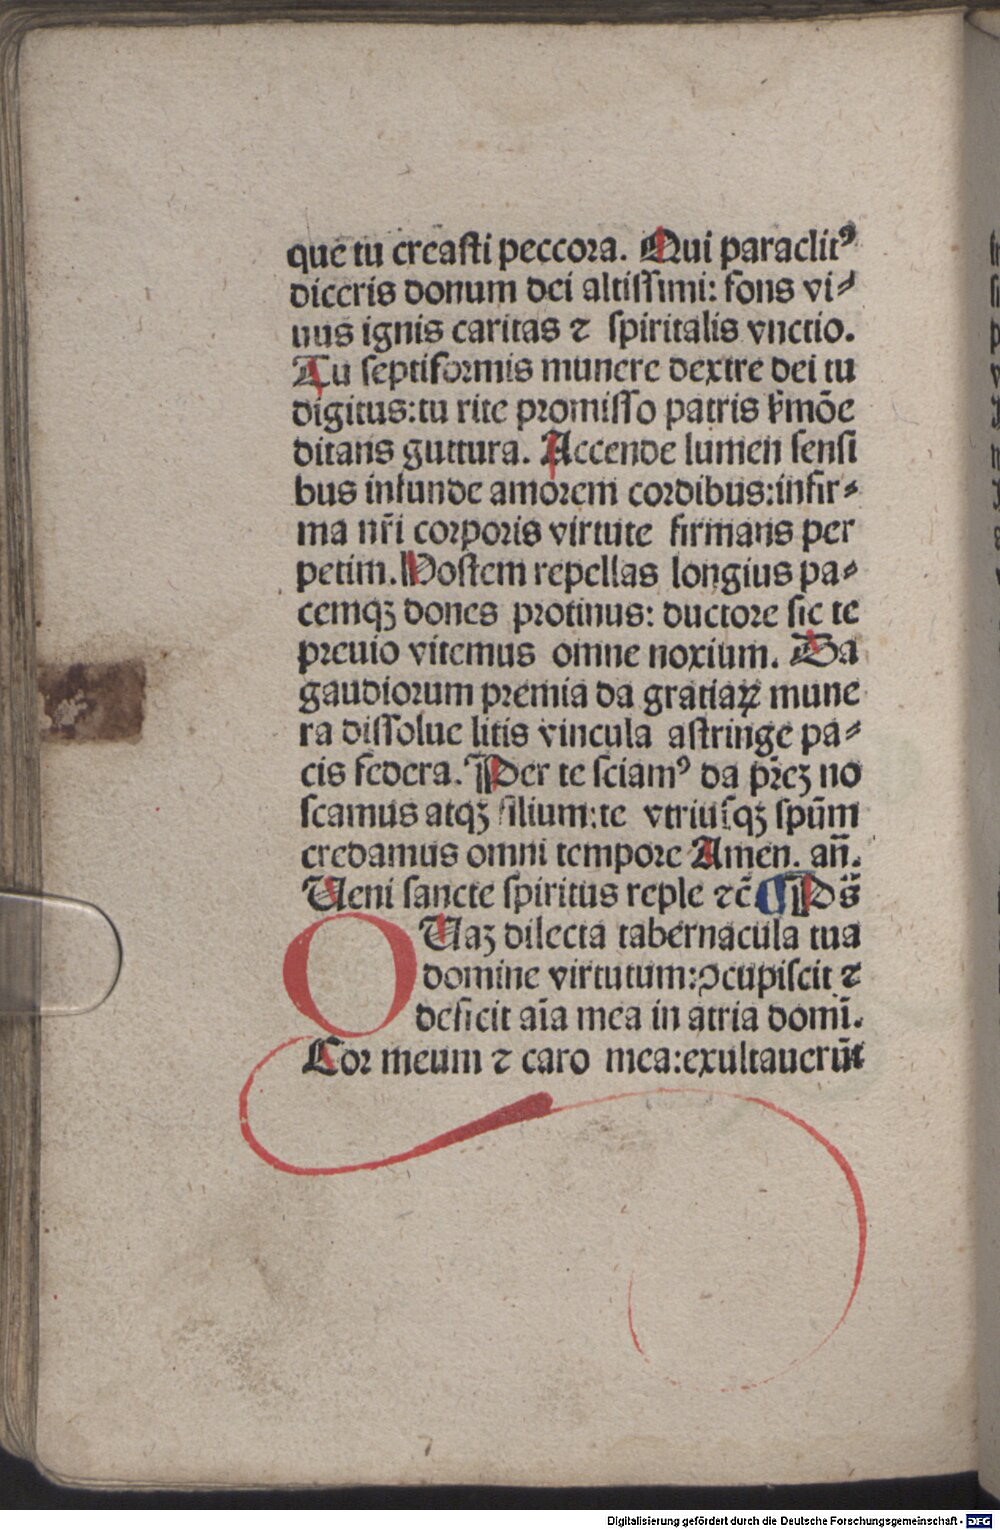 que tu creasti peccora. Qui paraclitꝰ
diceris donum dei altissimi: fons vi⸗
uus ignis caritas ⁊ spiritalis vnctio.
Tu septiformis munere dextre dei tu
digitus: tu rite promisso patris s̾mōe
ditans guttura. Accende lumen sensi
bus infunde amorem cordibus: infir⸗
ma nr̄i corporis virtute firmans per
petim. Hostem repellas longius pa⸗
cemqꝫ dones protinus: ductore sic te
preuio vitemus omne noxium. Da
gaudiorum premia da gratiaꝝ mune
ra dissolue litis vincula astringe pa⸗
cis federa. Per te sciamꝰ da pr̄eꝫ no
scamus atqꝫ filium: te vtriusqꝫ spūm
credamus omni tempore Amen. an̄.
Ueni sancte spiritus reple ⁊c̄ ¶ Ps̄
QUaꝫ dilecta tabernacula tua
domine virtutum: ꝯcupiscit ⁊
deficit aīa mea in atria domī.
Cor meum ⁊ caro mea: exultauerūt
Digitalisierung gefördert durch die Deutsche Forschungsgemeinschaft - DFG